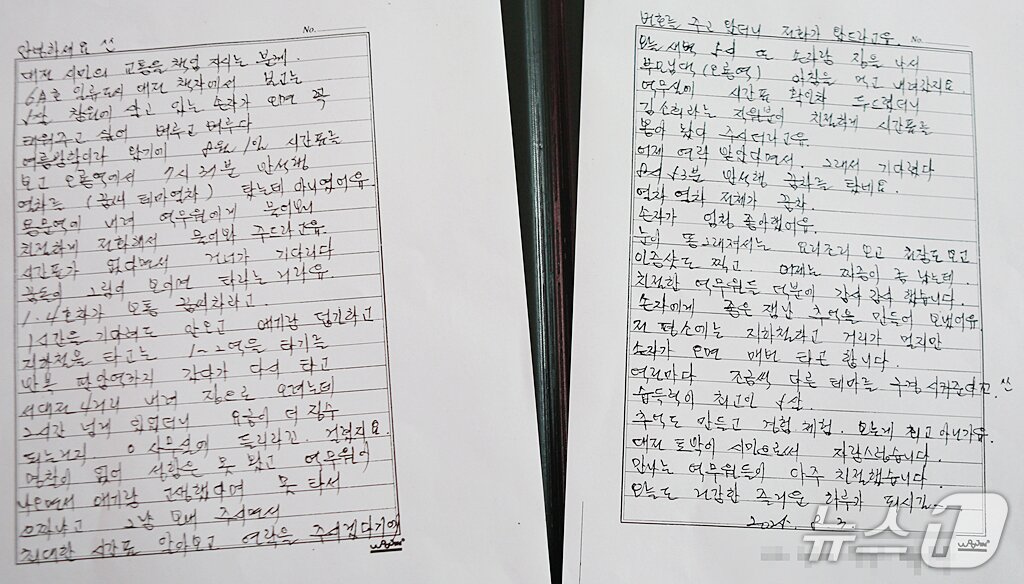 No.
안녕하세요
대전 시민의 교통을 책임 지시는 분께.
일류도시 대전 책자에서 보고는
5살 창원에 살고 있는 손자가 오면 꼭
태워주고 싶어 벼루고 벼루다
여름방학이라 왔기에 8월 1일 시간표를
보고 오룡역에서 7시 35분 반석행
열차를 (꿈씨 테마열차) 탔는데 아니였어유.
용문역에 내려 역무원에게 물어보니
친절하게 전화해서 물어봐 주드라고유.
시간표가 없다면서 거녀가 기다리다
꿈돌이 그림이 보이면 타라는 거라유
1. 4호차가 모두 꿈씨차라고.
1시간을 기다려도 안오고 애기랑 덥긴하고
지하철을 타고는 1~2역을 타기를
반복 판암역까지 갔다가 다시 타고
서대전 4거리 내려 집으로 오려는데
2시간 넘게 있었더니 요금이 더 징수
되는거라 사무실에 들리라고. 거렸지요.
명찰이 없어 성함은 못 봤고 역무원이
나오면서 애기랑 고생했다며 못 타서
으짜냐고 그냥 보내 주시면서
최대한 시간표 알아보고 연락을 주시겠다기에
No.
번호를 주고 왔더니 전화가 왔드라고유.
오늘 새벽 5시 또 손자랑 집을 나서
부모님댁(오룡역) 아침을 먹고 내려갔지요.
역무실에 시간표 확인차 두드렸더니
김소희라는 직원분이 친절하게 시간표를
뽑아 놨어 주시더라고유.
어제 연락 받았다면서. 그래서 기다렸다
8시 53분 반석행 꿈차를 탔네요.
열차 열차 전체가 꿈차.
손자가 엄청 좋아했어유.
눈이 똥그래져서는 요리조리 보고 칙칙도 보고
인증샷도 찍고. 어제는 짜증이 좀 났는데
친절한 역무원들 덕분에 감사 감사 했습니다.
손자에게 좋은 잼난 추억을 만들어 보냈어유.
저 평소에는 지하철하고 거리가 멀지만
손자가 오면 매번 타곤 합니다.
역마다 조금씩 다른 테마를 구경 시켜준다고
습득력이 최고인 5살.
추억도 만들고 경험 체험. 오늘에 최고 아닌가유.
대전 토박이 시민으로써 자랑스럽습니다.
만나는 역무원들이 아주 친절했습니다.
오늘도 건강한 즐거운 하루가 되시길.
2024. 8. 2.
뉴스1